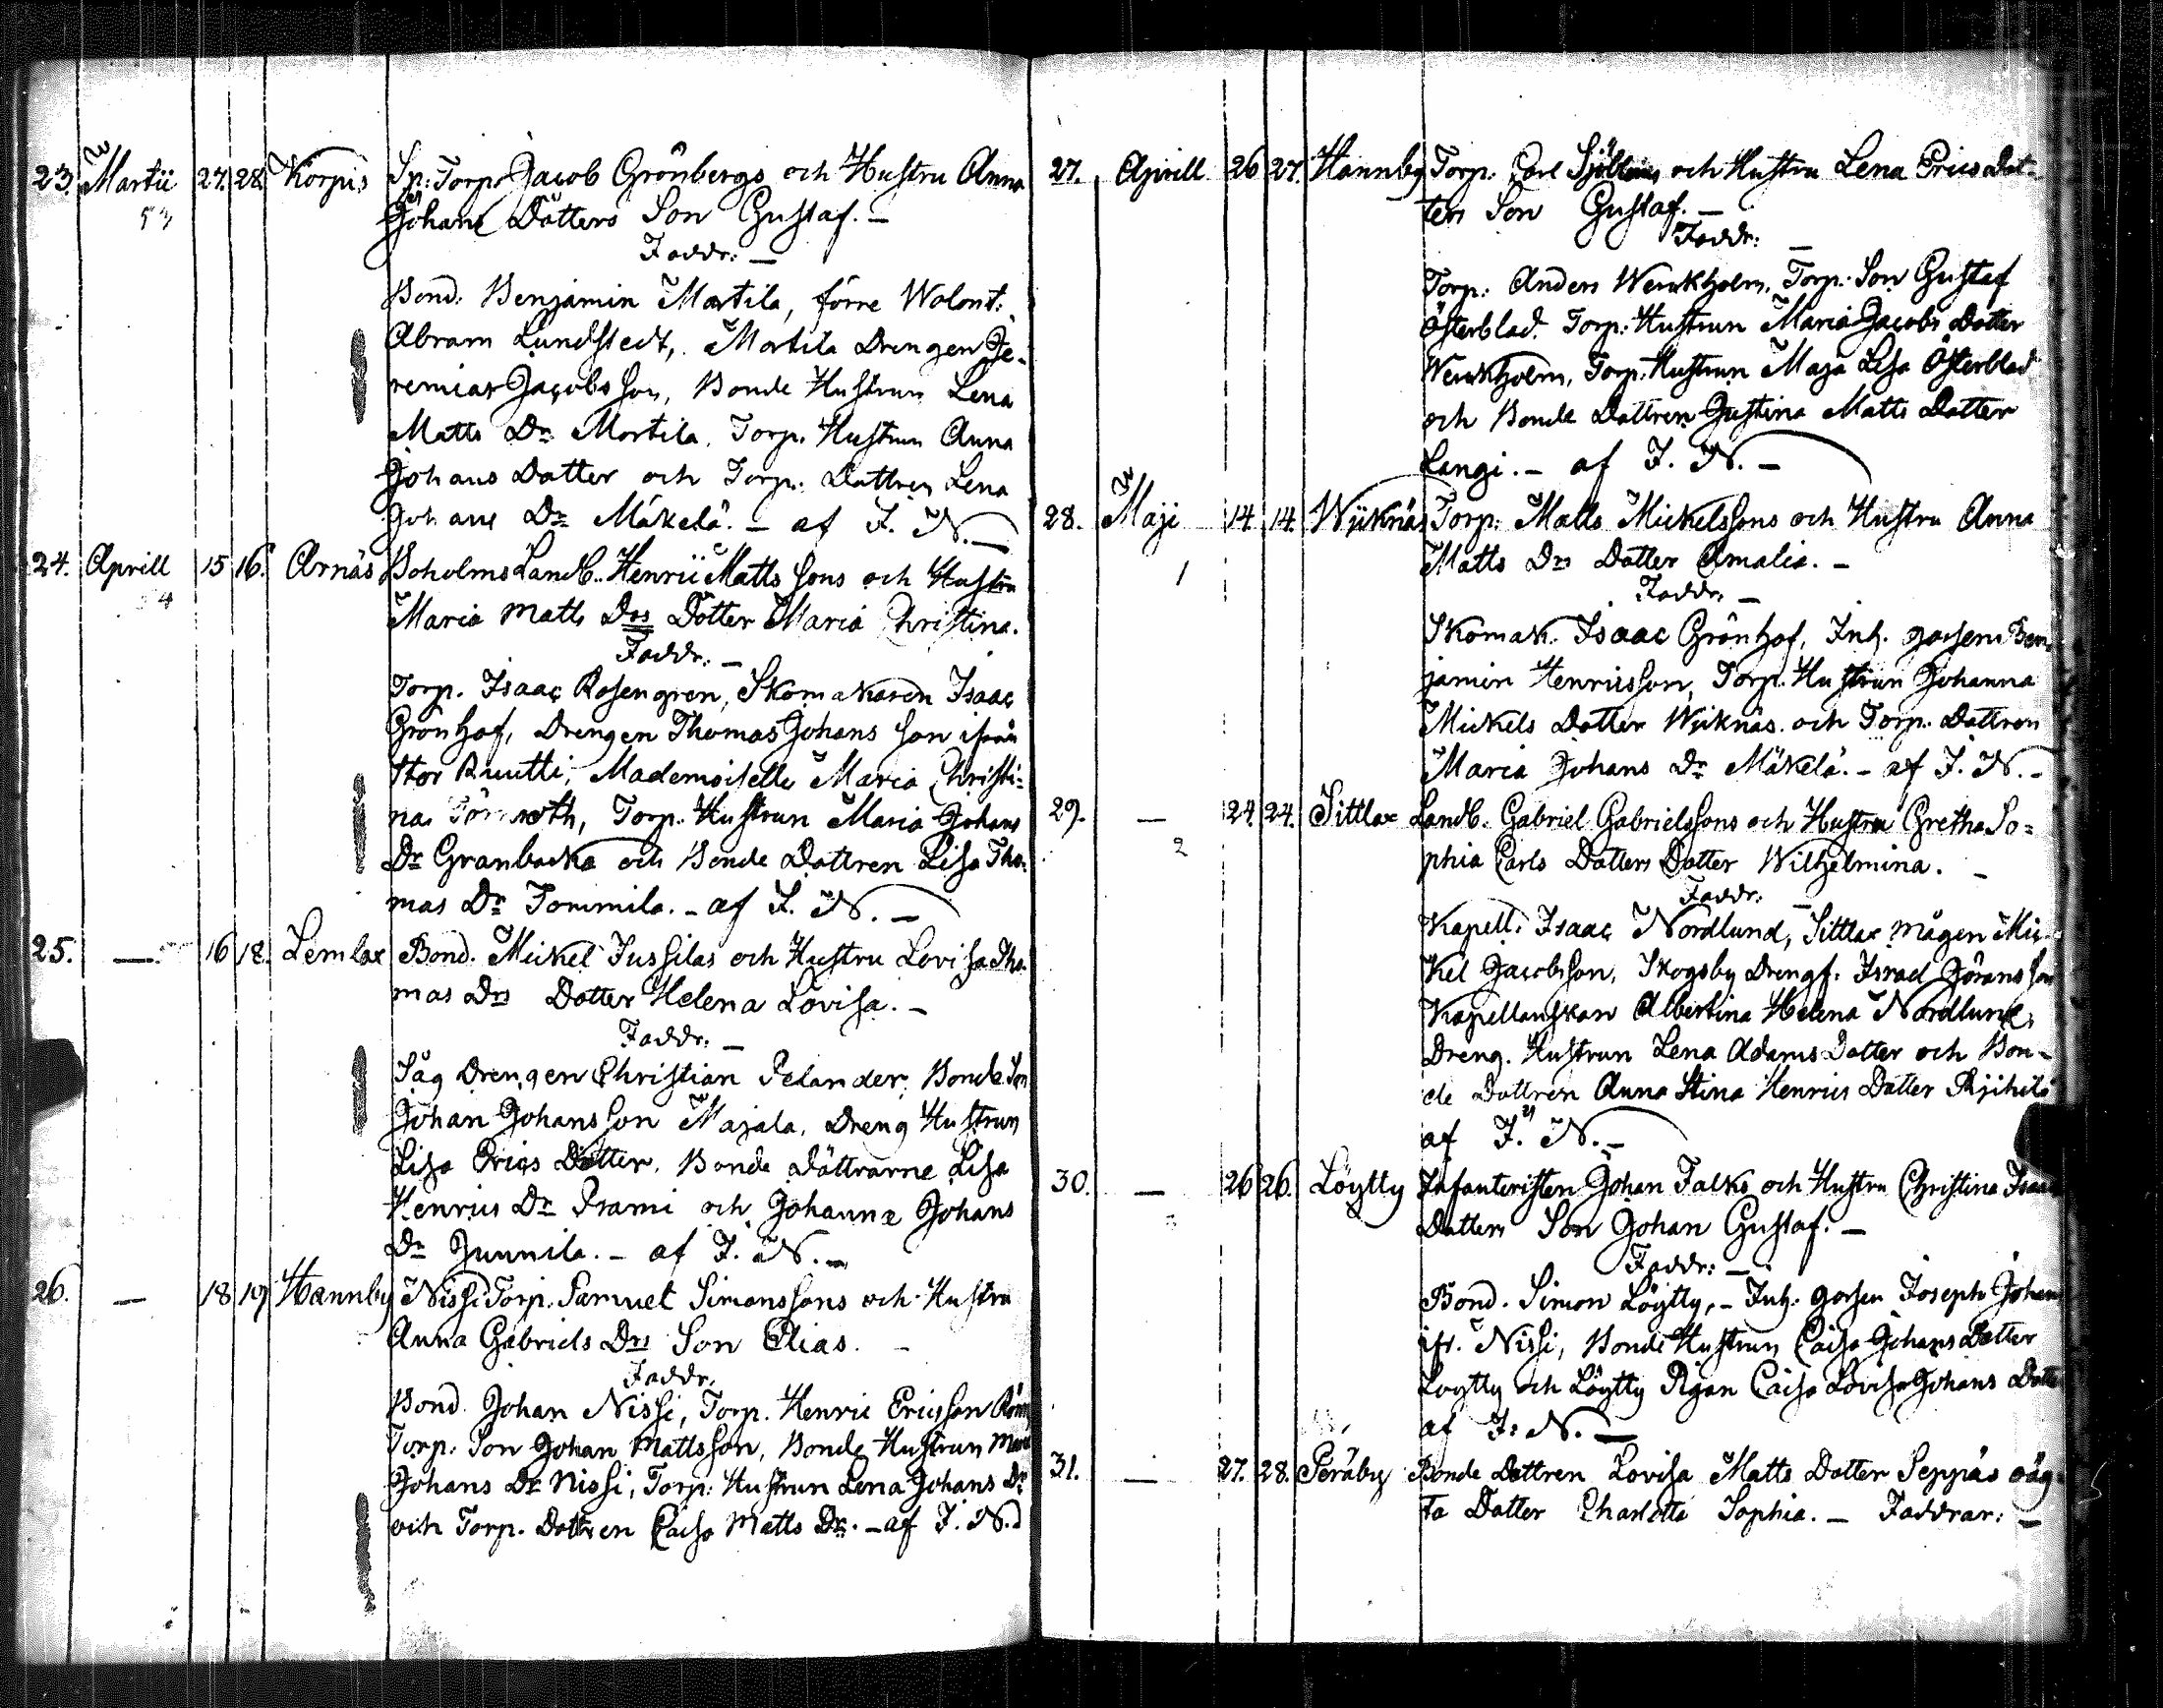 23. Martii 27. 28. Korpis Sp: Torp. Jacob Grönbergs och Hustru Anna
53
Johans Dotters Son Gustaf. –
Faddr: –
Bond: Benjamin Mortila, förre Wolont:
Abram Lundstedt, Mortila Drengen Je-
remias Jacobsson, Bonde Hustrun Lena
Matts Dr Mortila, Torp. Hustrun Anna
Johans Dotter och Torp: Dottren Lena
Johans Dr Mäkelä. – af I. N. –
24. Aprill 15 16. Arnäs Boholms Landb. Henric Matts Sons och Hustru
54
Maria Matts Drs Dotter Maria Christina.
Faddr. –
Torp. Isaac Rosengren, Skomakaren Isaac
Grönhof, Drengen Thomas Johans Son ifrån
Stor Ruutti, Mademoiselle Maria Christi-
na, Torp. Hustrun Maria Johans
Dr Granbacka och Bonde Dottren Lisa Tho-
mas Dr Tommila. – af I. N. –
25. – 16 18. Lemlax Bond. Mickel Jussilas och Hustru Lovisa Tho-
mas Drs Dotter Helena Lovisa. –
Faddr. –
Såg Drengen Christian Pelander, Bonde Son
Johan Johansson Majala, Dreng Hustrun
Lisa Erics Dotter, Bonde Döttrarne Lisa
Henrics Dr Prami och Johanna Johans
Dr Junnila. – af I. N. –
26. – 18 19 Hannby Nissi Torp. Samuel Simonssons och Hustru
Anna Gabriels Drs Son Elias. –
Faddr.
Bond. Johan Nissi, Torp. Henric Ericsson
Torp. Son Johan Mattsson, Bonde Hustrun Maria
Johans Dr Nissi, Torp: Hustrun Lena Johans Dr
och Torp. Dottren Caisa Matts Dr. – af I. N.
27. Aprill 26 27. Hannby Torp. Carl och Hustru Lena Erics Dot-
ters Son Gustaf. –
Faddr: –
Torp: Anders Wenkholm, Torp: Son Gustaf
Österblad. Torp: Hustrun Maria Jacobs Dotter
Wenkholm, Torp. Hustrun Maja Lisa Österblad
och Bonde Dottren Justina Matts Dotter
Langi. – af I. N. –
28. Maji 14. 14. Wiiknäs Torp: Matts Mickelssons och Hustru Anna
1
Matts Drs Dotter Amalia. –
Faddr. –
Skomak. Isaac Grönhof, Inh. gossen Ben-
jamin Henricsson, Torp. Hustrun Johanna
Mickels Dotter Wiiknäs och Torp. Dottren
Maria Johans Dr Mäkelä. – af I. N. –
29. – 24. 24. Sittlax Landb. Gabriel Gabrielssons och Hustru Gretha So-
2
phia Carls Dotters Dotter Wilhelmina. –
Faddr: –
Kapell: Isaac Nordlund, Sittlax mågen Mic-
kel Jacobsson, Skogsby Drengf. Israel Göransson
Kapellanskan Albertina Helena Nordlund,
Dreng. Hustrun Lena Adams Dotter och Bon-
de Dottren Anna Stina Henrics Dotter
af I. N. –
30. – 26 26. Löytty Infanteristen Johan Falks och Hustru Christina Isaacs
3
Dotters Son Johan Gustaf. –
Faddr: –
Bond. Simon Löytty, – Inh: gossen Joseph Johans
ifr. Nissi, Bonde Hustrun Caisa Johans Dotter
Loytty och Löytty Pigan Caisa Lovisa Johans Dotter
af I. N. –
31. – 27. 28. Peräby Bonde Dottren Lovisa Matts Dotter Seppäs oäg-
ta Dotter Charlotta Sophia. – Faddrar: –